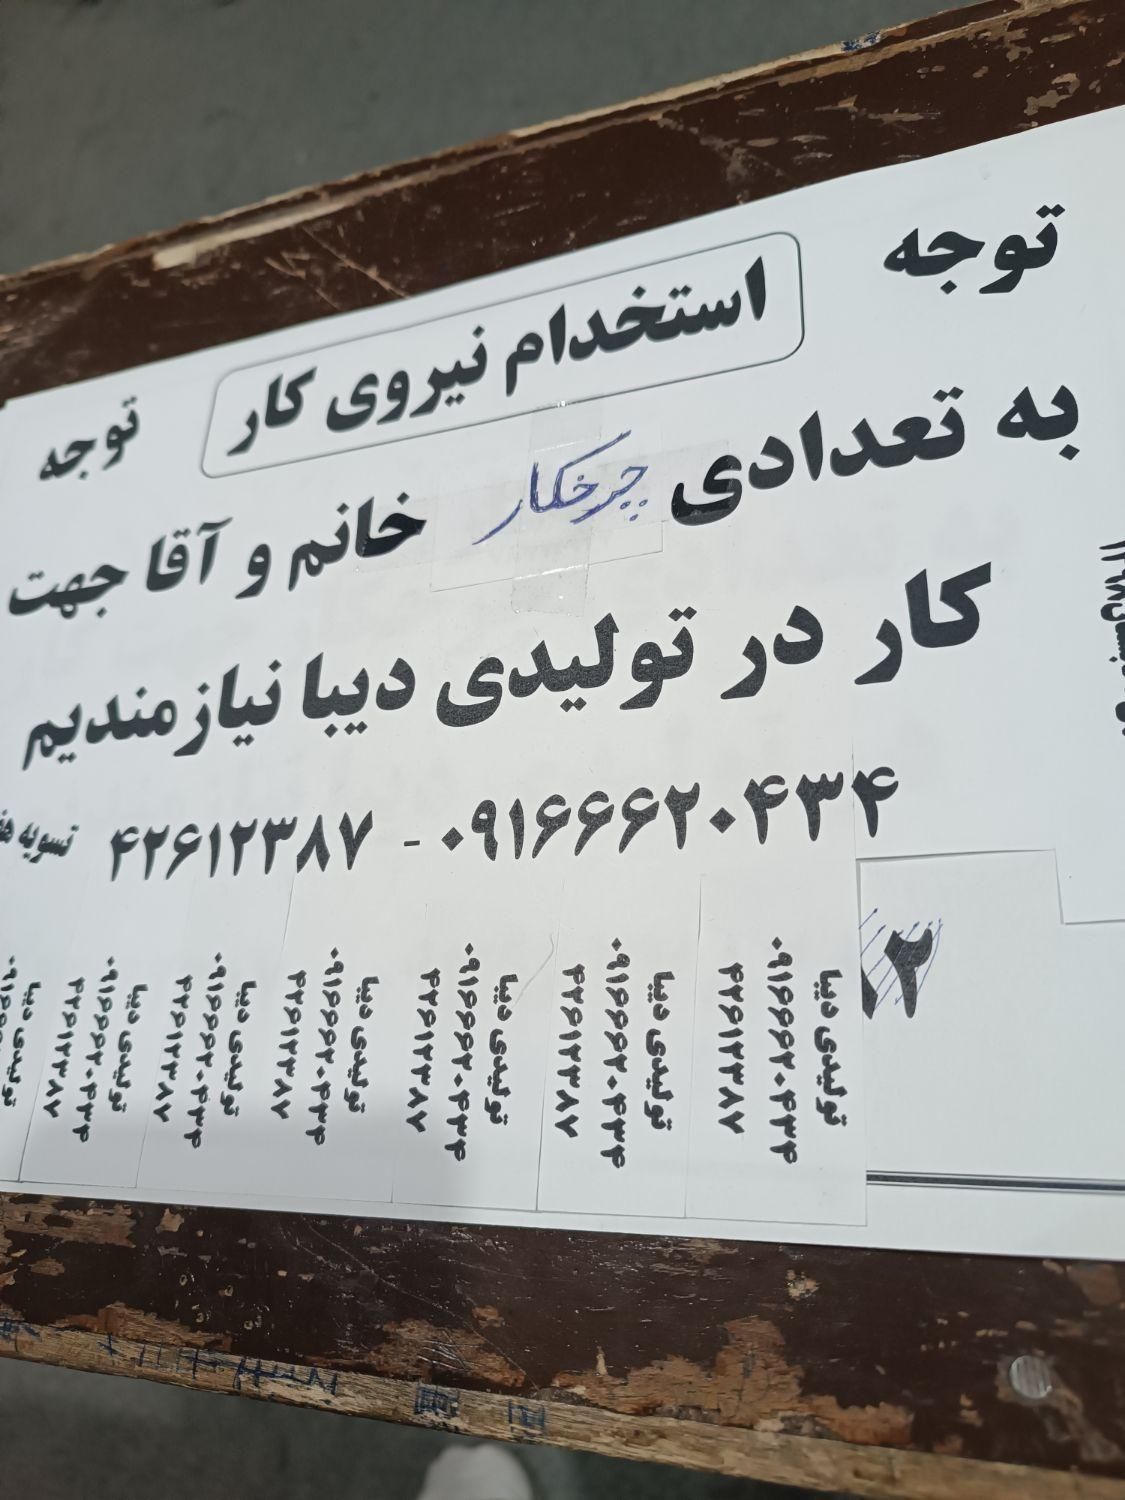 توجه
استخدام نیروی کار
توجه
به تعدادی چرخکار خانم و آقا جهت
کار در تولیدی دیبا نیازمندیم
۴۲۶۱۲۳۸۷ - ۰۹۱۶۶۶۲۰۴۳۴
تسویه
تولیدی دیبا
۰۹۱۶۶۶۲۰۴۳۴
۴۲۶۱۲۳۸۷
تولیدی دیبا
۰۹۱۶۶۶۲۰۴۳۴
۴۲۶۱۲۳۸۷
تولیدی دیبا
۰۹۱۶۶۶۲۰۴۳۴
۴۲۶۱۲۳۸۷
تولیدی دیبا
۰۹۱۶۶۶۲۰۴۳۴
۴۲۶۱۲۳۸۷
تولیدی دیبا
۰۹۱۶۶۶۲۰۴۳۴
۴۲۶۱۲۳۸۷
تولیدی دیبا
۰۹۱۶۶۶۲۰۴۳۴
۴۲۶۱۲۳۸۷
تولیدی دیبا